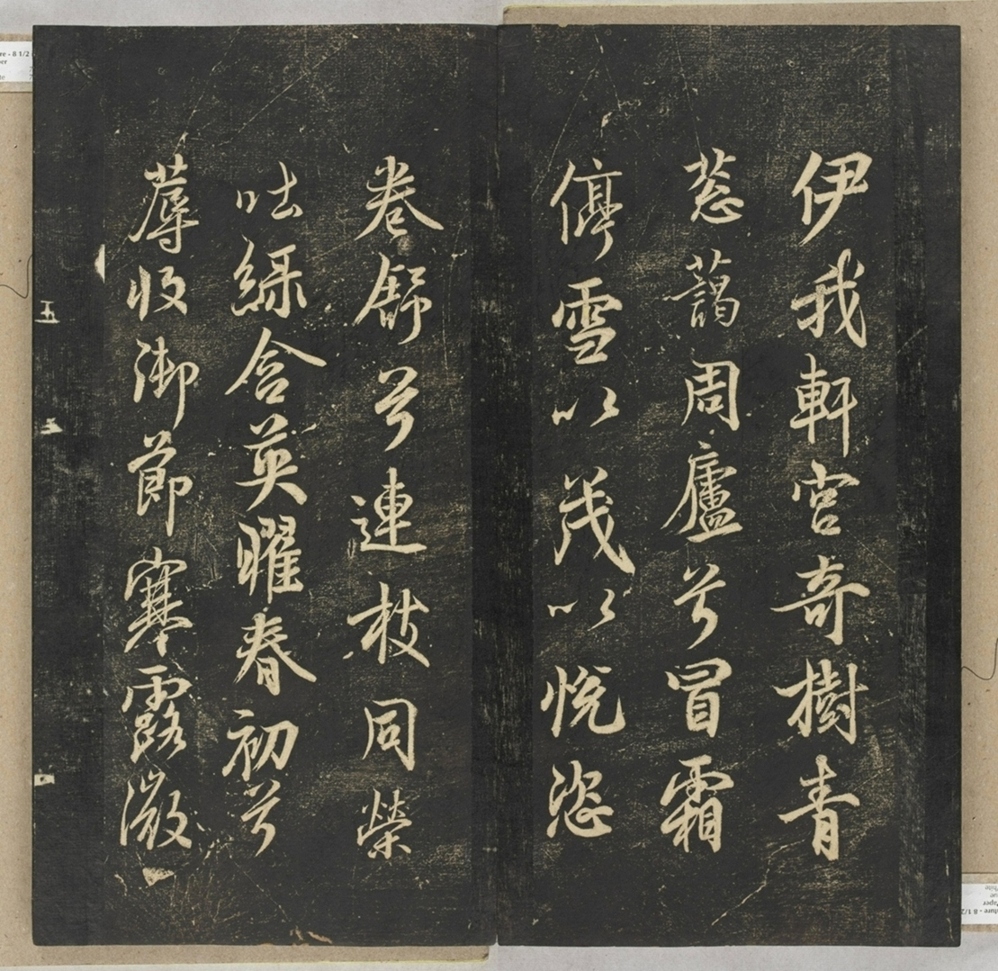 伊我軒宮奇樹青
蔥藹周廬兮冒霜
停雪以茂以悅恣
卷舒兮連枝同榮
吐綠含英曜春初兮
蓐收御節寒露微
五